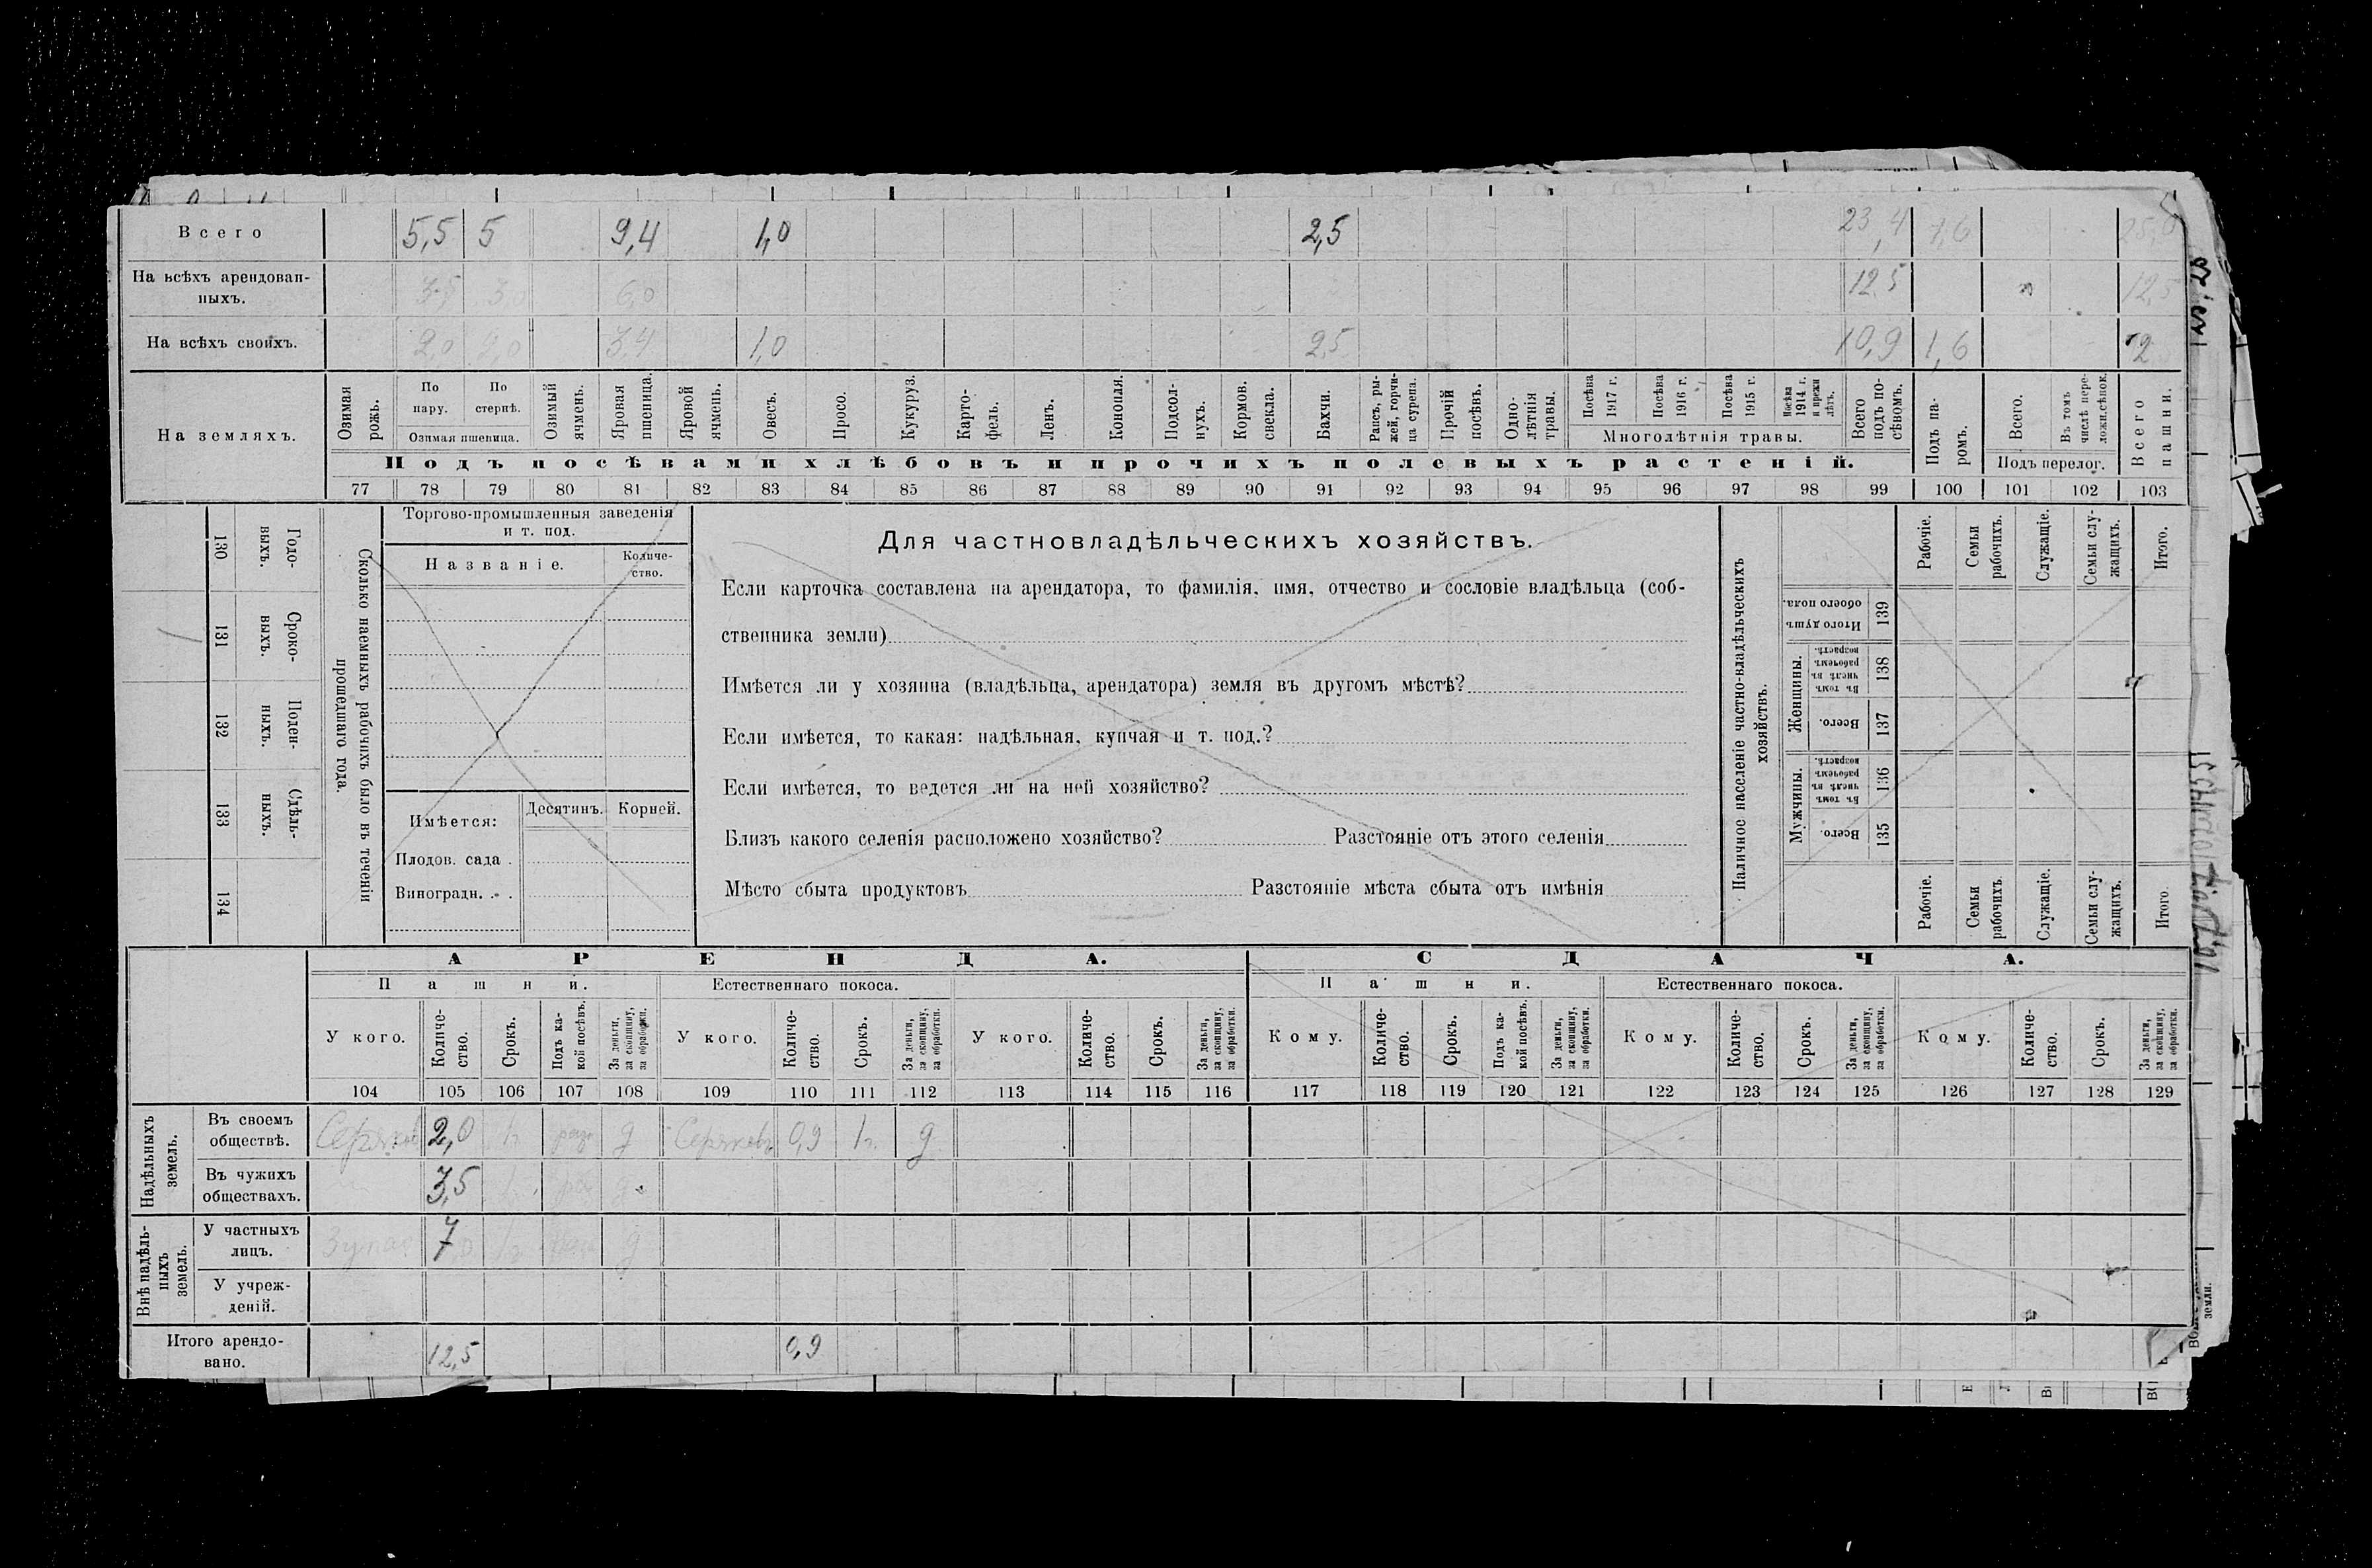 Всего 5,5 5 9,4 1,0 2,5 23,4 1,6
На всѣхъ арендован-
ныхъ. 3,5 3,0 6,0 12,5 12,5
На всѣхъ своихъ. 2,0 2,0 3,4 1,0 2,5 10,9 1,6
На земляхъ.
Озимая рожь.
По пару.
По стернѣ.
Озимая пшеница.
Озимый ячмень.
Яровая пшеница.
Яровой ячмень.
Овесъ.
Просо.
Кукуруз.
Карто-
фель.
Ленъ.
Конопля.
Подсол-
нухъ.
Кормов.
свекла.
Бахчи.
Рапсъ, ры-
жей, горчи-
ца сурепа.
Прочій
посѣвъ.
Одно-
лѣтнія
травы.
Посѣва
1917 г.
Посѣва
1916 г.
Посѣва
1915 г.
Посѣва
1914 г.
и прежн
лѣтъ.
Многолѣтнія травы.
Всего
подъ по-
сѣвомъ.
Подъ па-
ромъ.
Всего.
Въ томъ
числѣ пере-
ложн.сѣнок.
Подъ перелог.
Всего
пашни.
Подъ посѣвами хлѣбовъ и прочихъ полевыхъ растеній.
77 78 79 80 81 82 83 84 85 86 87 88 89 90 91 92 93 94 95 96 97 98 99 100 101 102 103
Годо-
выхъ.
130
Сроко-
выхъ.
131
Поден-
ныхъ.
132
Сдѣль-
ныхъ.
133
134
Сколько наемныхъ рабочихъ было въ теченіи
прошедшаго года.
Торгово-промышленныя заведенія
и т. под.
Названіе.
Количе-
ство.
Имѣется:
Десятинъ.
Корней.
Плодов. сада .
Виноградн. . .
Для частновладѣльческихъ хозяйствъ.
Если карточка составлена на арендатора, то фамилія, имя, отчество и сословіе владѣльца (соб-
ственника земли)
Имѣется ли у хозяина (владѣльца, арендатора) земля въ другомъ мѣстѣ?
Если имѣется, то какая: надѣльная, купчая и т. под.?
Если имѣется, то ведется ли на ней хозяйство?
Близъ какого селенія расположено хозяйство? Разстояніе отъ этого селенія
Мѣсто сбыта продуктовъ Разстояніе мѣста сбыта отъ имѣнія
Наличное населеніе частно-владѣльческихъ
хозяйствъ.
Рабочіе.
Семьи
рабочихъ.
Служащіе.
Семьи слу-
жащихъ.
Итого.
Итого душъ
обоего пола.
139
Женщины.
Въ томъ
числѣ въ
рабочемъ
возрастѣ.
138
Всего.
137
Мужчины.
Въ томъ
числѣ въ
рабочемъ
возрастѣ.
136
Всего.
135
Рабочіе.
Семьи
рабочихъ.
Служащіе.
Семьи слу-
жащихъ.
Итого.
АРЕНДА. СДАЧА.
Пашни. Естественнаго покоса. Пашни. Естественнаго покоса.
У кого.
Количе-
ство.
Срокъ.
Подъ ка-
кой посѣвъ.
За деньги,
за скопщину,
за обработки.
У кого.
Количе-
ство.
Срокъ.
За деньги,
за скопщину,
за обработки.
У кого.
Количе-
ство.
Срокъ.
За деньги,
за скопщину,
за обработки.
Кому.
Количе-
ство.
Срокъ.
Подъ ка-
кой посѣвъ.
За деньги,
за скопщину,
за обработки.
Кому.
Количе-
ство.
Срокъ.
За деньги,
за скопщину,
за обработки.
Кому.
Количе-
ство.
Срокъ.
За деньги,
за скопщину,
за обработки.
104 105 106 107 108 109 110 111 112 113 114 115 116 117 118 119 120 121 122 123 124 125 126 127 128 129
Надѣльныхъ
земель.
Въ своемъ
обществѣ. 2,0 1г д 0,9 1г. д
Въ чужихъ
обществахъ. 3,5
Внѣ надѣль-
ныхъ
земель.
У частныхъ
лицъ. 7,0 1г д
У учреж-
деній.
Итого арендо-
вано. 12,5 0,9
земли.